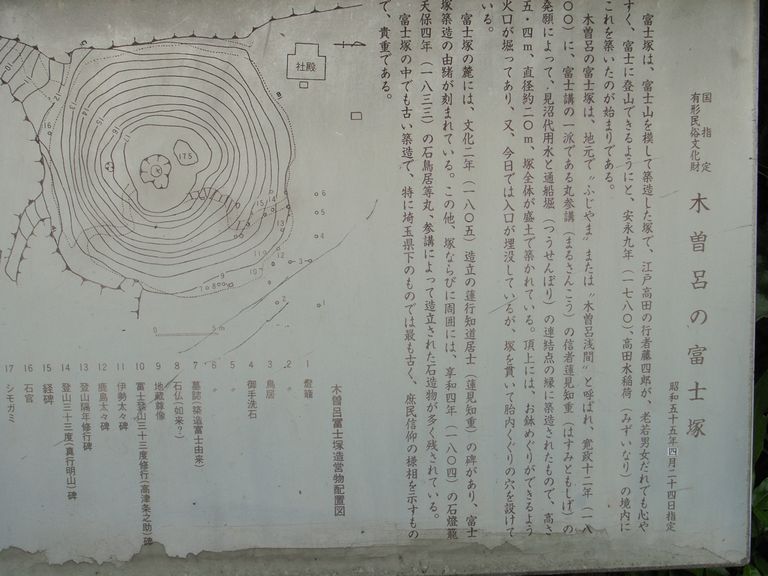 国指定
有形民俗文化財
木曽呂の富士塚
昭和五十五年四月二十四日指定
富士塚は、富士山を模して築造した塚で、江戸高田の行者藤四郎が、老若男女だれでも心や
すく、富士に登山できるようにと、安永九年（一七八〇）、高田水稲荷（みずいなり）の境内に
これを築いたのが始まりである。
木曽呂の富士塚は、地元で〝ふじやま〟または〝木曽呂浅間〟と呼ばれ、寛政十二年（一八
〇〇）に、富士講の一派である丸参講（まるさんこう）の信者蓮見知重（はすみともしげ）の
発願によって、見沼代用水と通船堀（つうせんぼり）の連結点の縁に築造されたもので、高さ
五・四m、直径約二〇m、塚全体が盛土で築かれている。頂上には、お鉢めぐりができるよう
火口が掘ってあり、又、今日では入口が埋没しているが、塚を貫いて胎内くぐりの穴を設けて
いる。
富士塚の麓には、文化二年（一八〇五）造立の蓮行知道居士（蓮見知重）の碑があり、富士
塚築造の由緒が刻まれている。この他、塚ならびに周囲には、享和四年（一八〇四）の石燈籠
天保四年（一八三三）の石鳥居等丸、参講によって造立された石造物が多く残されている。
富士塚の中でも古い築造で、特に埼玉県下のものでは最も古く、庶民信仰の様相を示すもの
で、貴重である。
社殿
17.5
0 5m
木曽呂富士塚造営物配置図
1 燈籠
2 〃
3 鳥居
4 御手洗石
5 〃
6 〃
7 墓誌（築造富士由来）
8 石仏（如来？）
9 地蔵尊像
10 富士登山三十三度修行（高津条之助）碑
11 伊勢太々碑
12 鹿島太々碑
13 登山隔年修行碑
14 登山三十三度（真行明山）碑
15 経碑
16 石宮
17 シモガミ